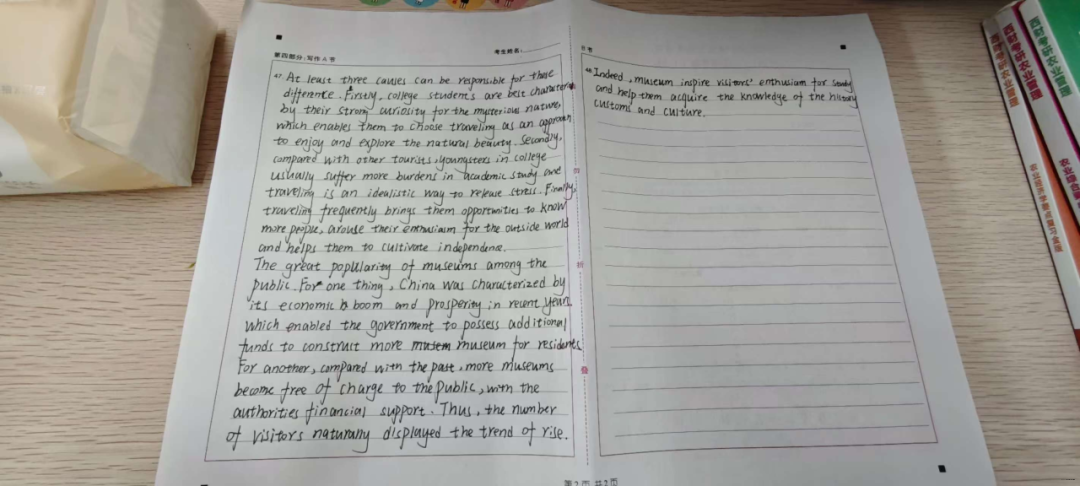 第四部分:写作A节
考生姓名:
47. At least three causes can be responsible for these
difference. Firstly, college students are best characteri
by their strong curiosity for the mysterious nature,
which enables them to choose traveling as an approach
to enjoy and explore the natural beauty. Secondly,
compared with other tourists, youngsters in college
usually suffer more burdens in academic study and
traveling is an idealistic way to release stress. Finally,
traveling frequently brings them opportunities to know
more people, arouse their enthusiasm for the outside world
and helps them to cultivate independence.
The great popularity of museums among the
public. For one thing, China was characterized by
its economic boom and prosperity in recent years,
which enabled the government to possess additional
funds to construct more museum for residents.
For another, compared with the past, more museums
become free of charge to the public, with the
authorities financial support. Thus, the number
of visitors naturally displayed the trend of rise.
B节
48. Indeed, museum inspire visitors' enthusiasm for study
and help them acquire the knowledge of the history
customs and culture.
第2页 共2页
西财考研农业管理
西财考研农业管理
西财考研农业管理